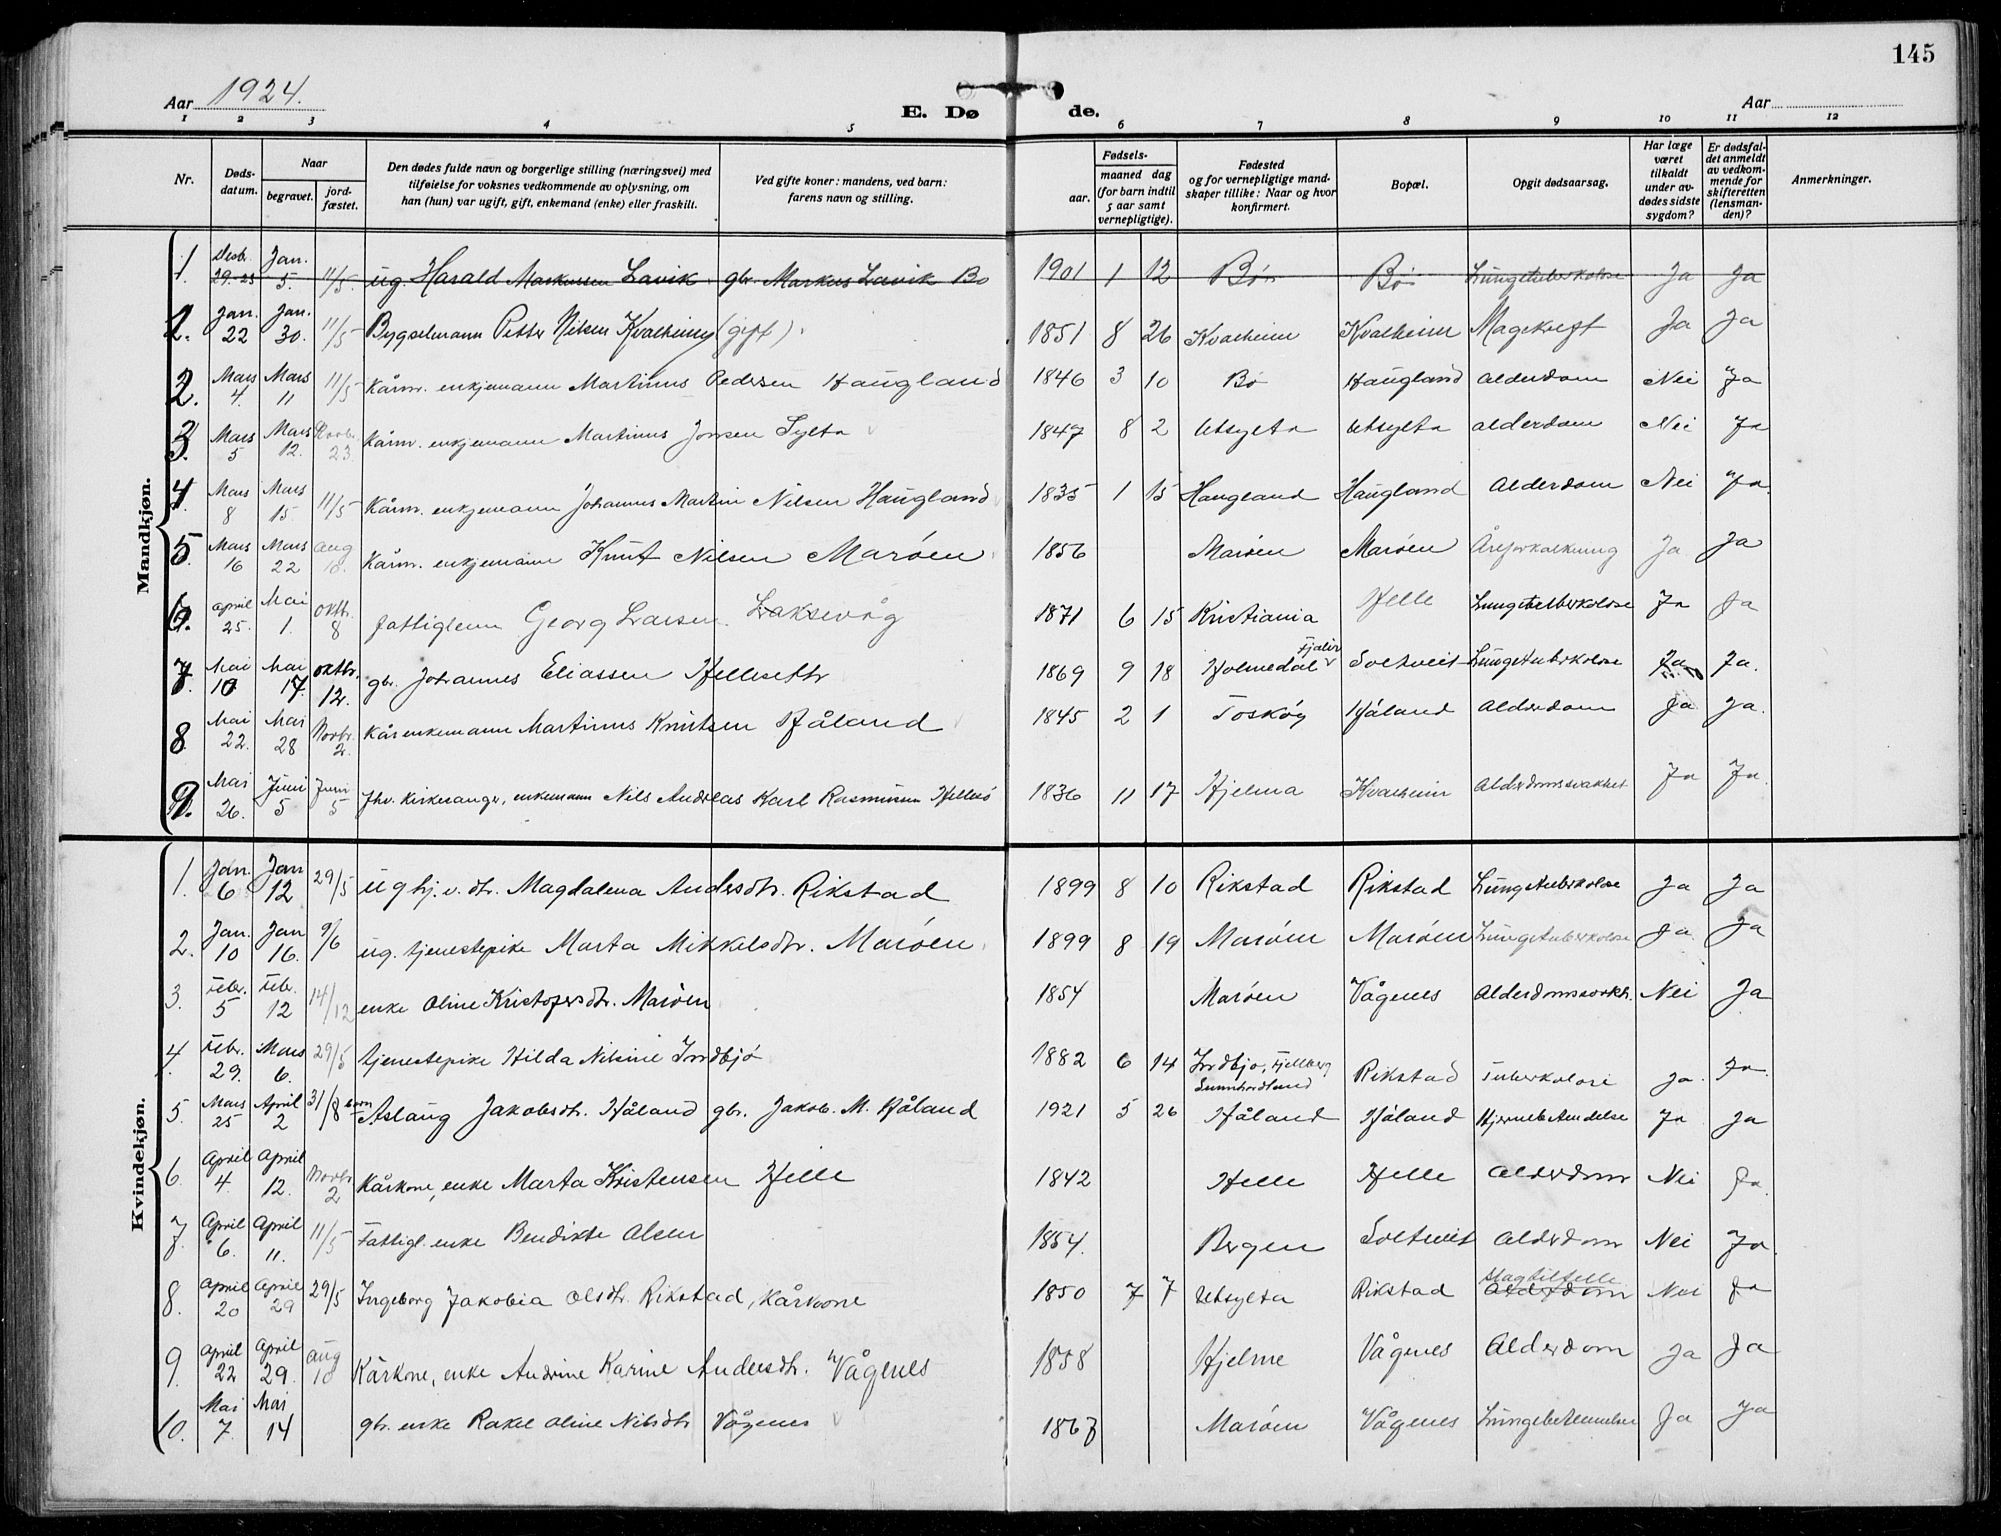 145
Aar 1924.
E. Døde.
Aar
1 2 3 4 5 6 7 8 9 10 11 12
Nr.
Døds-datum.
Naar
begravet.
jord-fæstet.
Den dødes fulde navn og borgerlige stilling (næringsvei) med tilføielse for voksnes vedkommende av oplysning, om han (hun) var ugift, gift, enkemand (enke) eller fraskilt.
Ved gifte koner: mandens, ved barn: farens navn og stilling.
Fødsels-
aar.
maaned dag (for barn indtil 5 aar samt vernepligtige).
Fødested og for vernepligtige mand-skaper tillike: Naar og hvor konfirmert.
Bopæl.
Opgit dødsaarsag.
Har læge været tilkaldt under av-dødes sidste sygdom?
Er dødsfal-det anmeldt av vedkom-mende for skifteretten (lensman-den)?
Anmerkninger.
Mandkjøn.
1 Desbr. 29-23 Jan. 5. 11/5. ug. Harald Markussen Lavik gbr. Markus Lavik Bø 1901 1 12 Bø Bø Lungetuberkolose Ja Ja
1. Jan. 22 Jan. 30. 11/5 Bygselmann Petter Nilsen Kvalheim (gift) 1851 8 26 Kvalheim Kvalheim Magekreft Ja Ja
2. Mars 4. Mars 11 11/5 Kårm. enkjemann Martinus Pedersen Haugland 1846 3 10 Bø Haugland Alderdom Nei Ja
3. Mars 5 Mars 12. Novbr. 23. Kårm. enkjemann Martinus Jonsen Sylta 1847 8 2 Utsylta Utsylta Alderdom Nei Ja
4. Mars 8 Mars 15 11/5 Kårm. enkjemann Johannes Martin Nilsen Haugland 1835 1 15 Haugland Haugland Alderdom Nei Ja.
5. Mars 16 Mars 22 Aug 10. Kårm. enkjemann Knut Nilsen Marøen 1856 Marøen Marøen Åreforkalkning Ja Ja
6. April 25. Mai 1. Oktb. 8 Fattiglem Georg Larsen Laksevåg 1871 6 15 Kristiania Helle Lungetuberkolose Ja Ja
7. Mai 10 Mai 17. Oktbr. 12. gbr. Johannes Eliassen Helleseth 1869 9 18 Holmedal Fjaler Soltveit Lungetuberkolose Ja Ja.
8 Mai 22. Mai 28 Novbr. 2. Kårenkemann Martinus Knutsen Håland 1845 2 1 Toskøy Håland Alderdom Ja Ja.
9. Mai 26. Juni 5 Juni 5 Fhv. Kirkesanger, enkemann Nils Andreas Karl Rasmussen Hellesø 1836 11 17 Hjelma Kvalheim Alderdomssvakhet Ja Ja.
Kvindekjøn.
1. Jan. 6 Jan 12 29/5 ug hj. v. dtr. Magdalena Andersdtr. Rikstad 1899 8 10 Rikstad Rikstad Lungetuberkolose Ja Ja
2. Jan. 10 Jan 16. 9/6 ug. tjenestepike Marta Mikkelsdtr. Marøen 1899 8 19 Marøen Marøen Lungetuberkolose Ja Ja
3. Febr. 5 Febr. 12 14/12 enke Oline Kristofersdtr. Marøen 1854 Marøen Vågenes Alderdomssvakh. Nei Ja
4. Febr. 29. Mars 6. 29/5 tjenestepike Hilda Nilsine Indbjø 1882 6 14 Indbjo, Fjellberg Sunnhordland Rikstad Tuberkolose Ja. Ja.
5 Mars 25 April 2 31/8 barn Aslaug Jakobsdtr. Håland gbr. Jakob. M. Håland 1921 5 26 Håland Håland Hjernebetendelse Ja Ja
6. April 4. April 12. Novbr 2 Kårkone, enke Marta Kristensen Helle 1842 Helle Helle Alderdom Nei Ja.
7. April 6. April 11. 11/5 Fattigl. enke Bendikte Olsen 1854. Bergen Soltveit Alderdom Nei Ja.
8. April 20 April 29 29/5 Ingeborg Jakobia Olsdtr. Rikstad, Kårkone 1850 7 7 Utsylta Rikstad Slagtilfelle Alderdom Nei Ja
9. April 22 April 29. Aug 10 Kårkone, enke Andrine Karine Andersdtr. Vågenes 1858 Hjelme Vågenes Alderdom Ja Ja
10. Mai 7. Mai 14 gbr. enke Rakel Oline Nilsdtr Vågenes 1867 Marøen Vågenes Lungebetennelse Ja Ja